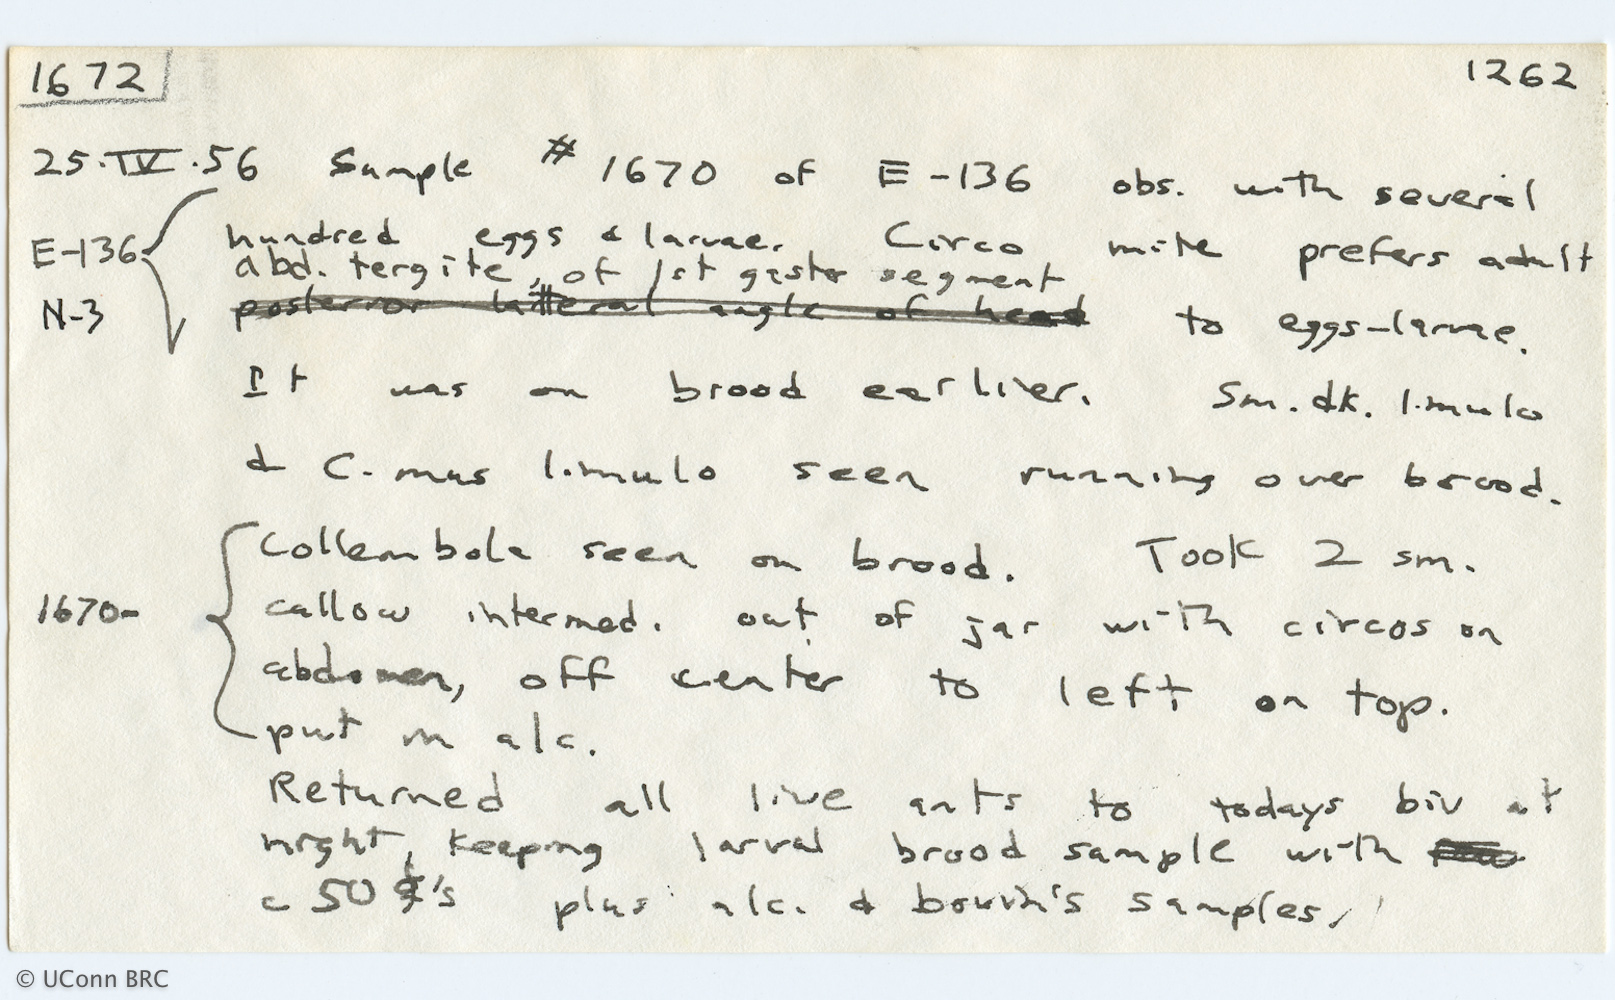 1672
1262
25·IV·56 Sample # 1670 of E-136 obs. with several
E-136
hundred eggs & larvae. Circo mite prefers adult
abd. tergite, of 1st gaster segment
N-3
posterior lateral angle of head to eggs-larvae.
It was on brood earlier. Sm. dk. limulo
& C-mus limulo seen running over brood.
Collembola seen on brood. Took 2 sm.
1670-
callow intermed. out of jar with circos on
abdomen, off center to left on top.
put in alc.
Returned all live ants to todays biv at
night, keeping larval brood sample with
c 50 ☿'s plus alc. & bouin's samples.
© UConn BRC